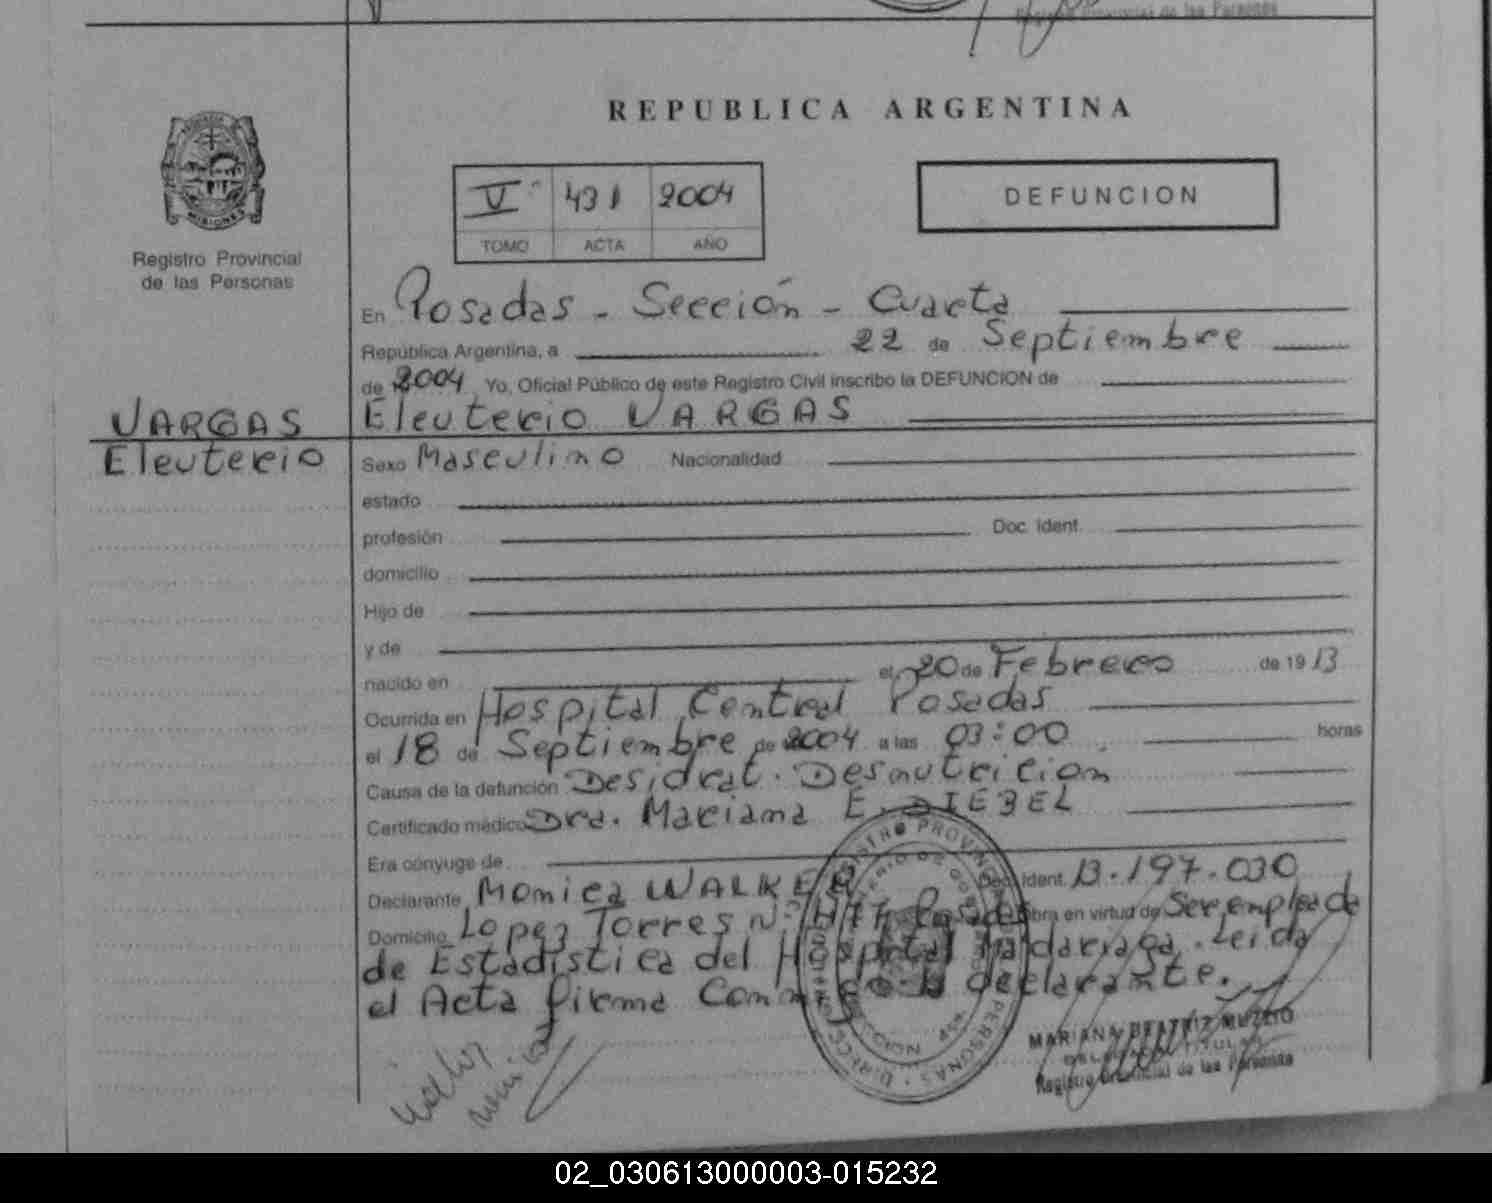 Registro Provincial de las Personas
REPUBLICA ARGENTINA
V 431 2004
TOMO ACTA AÑO
DEFUNCION
MISIONES
Registro Provincial
de las Personas
En Posadas - Sección - Cuarta
República Argentina, a 22 de Septiembre
de 2004 Yo, Oficial Público de este Registro Civil inscribo la DEFUNCION de
Eleuterio VARGAS
VARGAS
Eleuterio
Sexo Masculino Nacionalidad
estado
profesión Doc. Ident.
domicilio
Hijo de
y de
nacido en el 20 de Febrero de 1913
Ocurrida en Hospital Central Posadas
el 18 de Septiembre de 2004 a las 03:00 horas
Causa de la defunción Desidrat. Desnutricion
Certificado médico Dra. Mariana E. DIEBEL
Era cónyuge de
Declarante Monica WALKER Doc. Ident. 13.197.030
Domicilio Lopez Torres N° Posadas Obra en virtud de Ser empleada
de Estadistica del Hospital Madariaga. Leida
el Acta firma Conmigo la declarante.
MARIANA BEATRIZ MUZZIO
DELEGADA TITULAR
Registro Provincial de las Personas
02_030613000003-015232